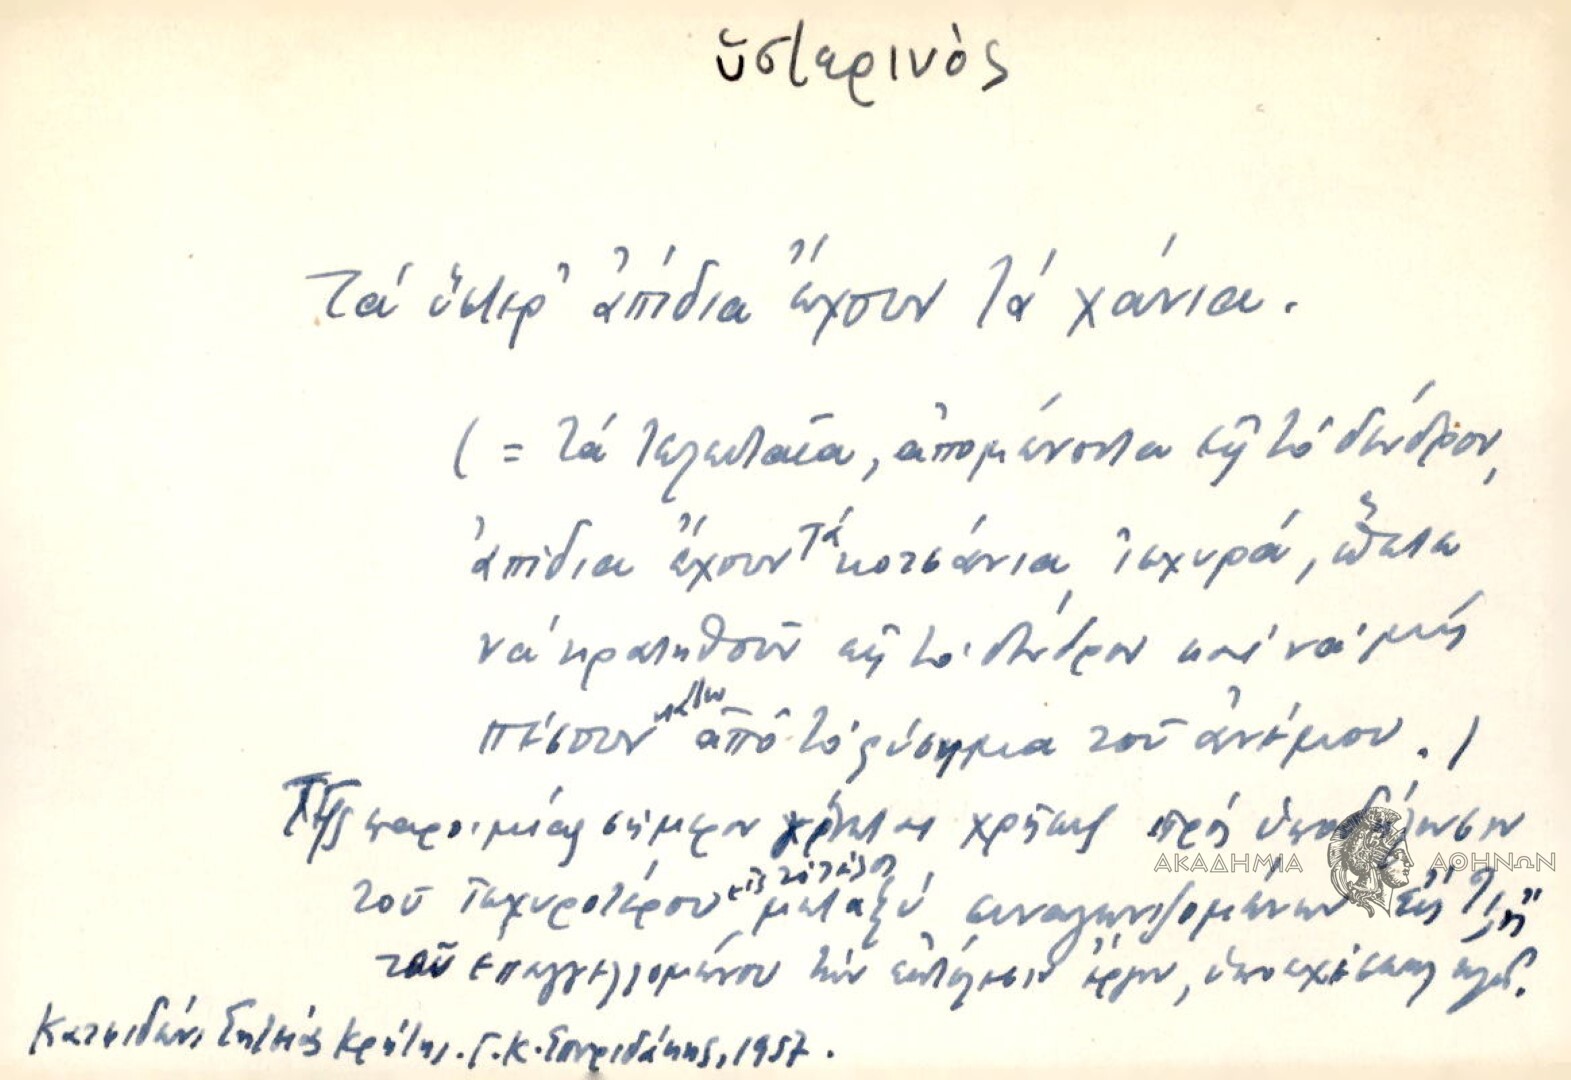 ὑστερινὸς
Τά ὕστερ' ἀπίδια ἔχουν τά χάνια.
( = τά τελευταῖα, ἀπομένοντα εἰς τό δένδρον,
ἀπίδια ἔχουν τά κοτσάνια ἰσχυρά, ὥστε
νά κρατηθοῦν εἰς τό δένδρον καί νά μής
πέσουν κάτω ἀπό τό φύσημα τοῦ ἀνέμου.)
Τῆς παροιμίας σήμερον γίνεται χρῆσις πρός ὑποδήλωσιν
τοῦ ἰσχυροτέρου εἰς τό τέλος μεταξύ συναγωνιζομένων εἰς τι, ἤ
τοῦ ἐπαγγελλομένου τήν ἐκτέλεσιν ἔργου, ὑποσχέσεως κλπ.
Κατσιδώνι Σητείας Κρήτης. Γ. Κ. Σπυριδάκης, 1957.
ΑΚΑΔΗΜΙΑ ΑΘΗΝΩΝ